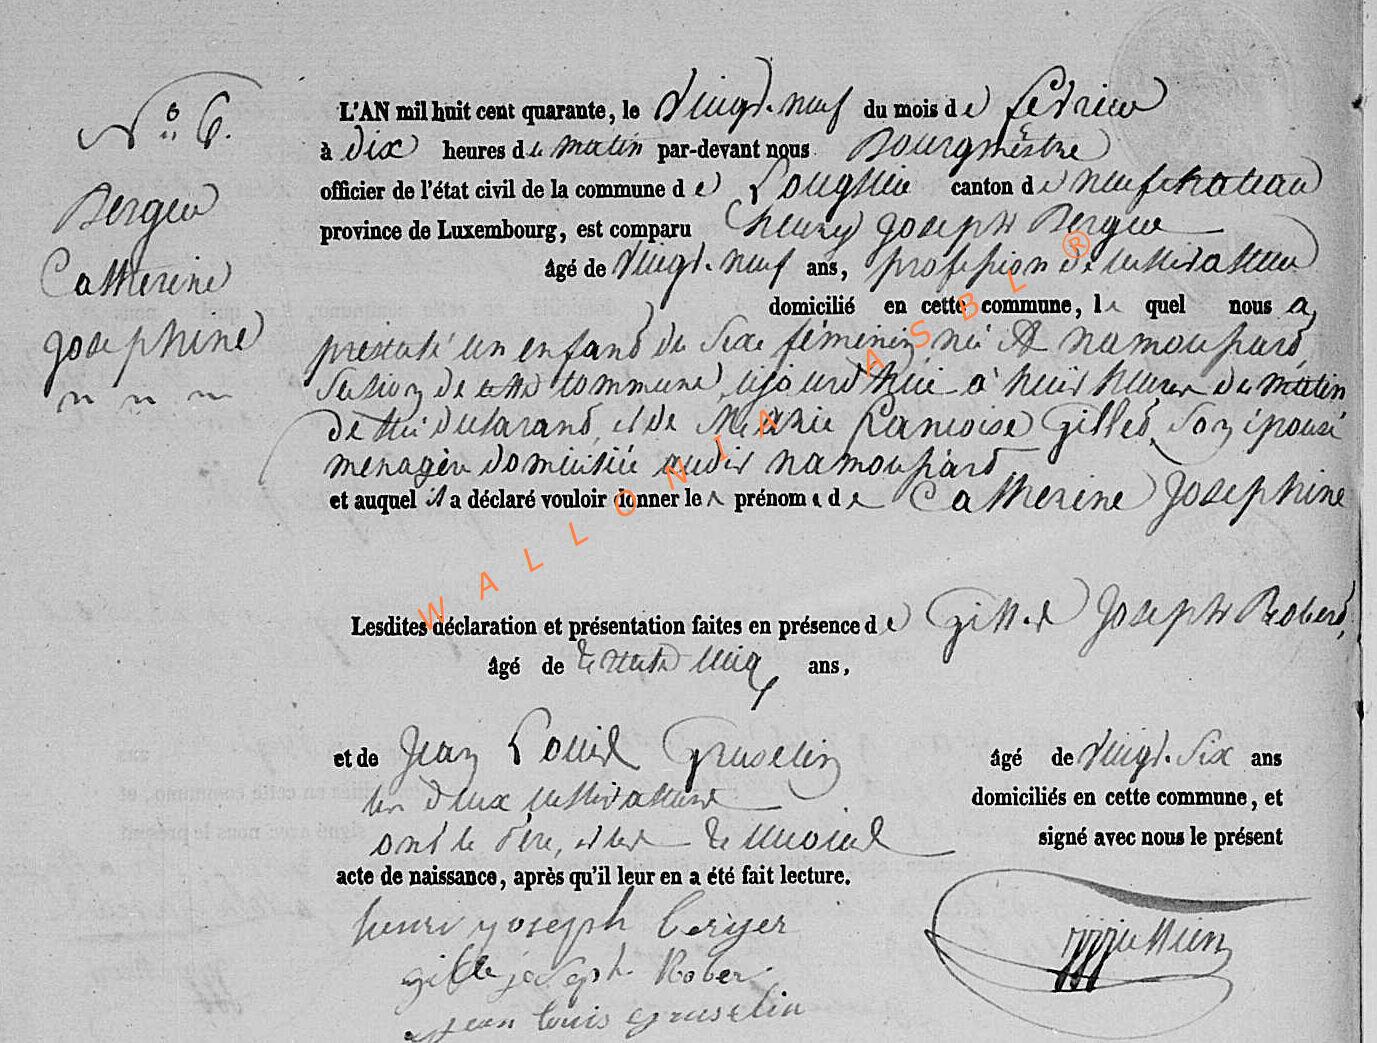 N° 6.
Bergeu
Catherine
Josephine
L'AN mil huit cent quarante, le Vingt-neuf du mois de fevrieu
à dix heures du matin par-devant nous Bourgmestre
officier de l'état civil de la commune de Longlieu canton de neufchateau
province de Luxembourg, est comparu henry Joseph Bergeu
âgé de Vingt-neuf ans, profession de cultivateur
domicilié en cette commune, le quel nous a
présenté un enfant du sexe féminin, né à namoussard,
section de cette commune, aujourd'huie à huit heures du matin
de lui déclarant, et de Marie francoise Gilles, son épouse
menagère domiciliée audit namoussard
et auquel il a déclaré vouloir donner les prénoms de Catherine Josephine
Lesdites déclaration et présentation faites en présence de Gilles Joseph Robert,
âgé de trente cinq ans,
et de Jean Louis Gruselin âgé de Vingt-six ans
les deux cultivateurs domiciliés en cette commune, et
ont le père, et les temoins signé avec nous le présent
acte de naissance, après qu'il leur en a été fait lecture.
henri joseph berger
gille joseph Rober
jean louis gruselin
WALLONIA ASBL ®